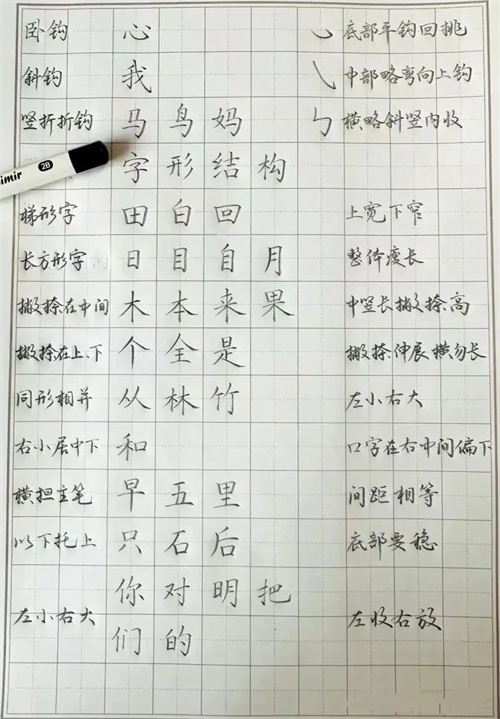 卧钩 心 底部平钩回挑
斜钩 我 中部略弯向上钩
竖折折钩 马 鸟 妈 横略斜竖内收
imir 2B
字 形 结 构
梯形字 田 白 回 上宽下窄
长方形字 日 目 自 月 整体瘦长
撇捺在中间 木 本 来 果 中竖长撇捺高
撇捺在上、下 个 全 是 撇捺伸展横勿长
同形相并 从 林 竹 左小右大
右小居中下 和 口字在右中间偏下
横担主笔 早 五 里 间距相等
以下托上 只 石 后 底部要稳
你 对 明 把
左小右大 左收右放
们 的